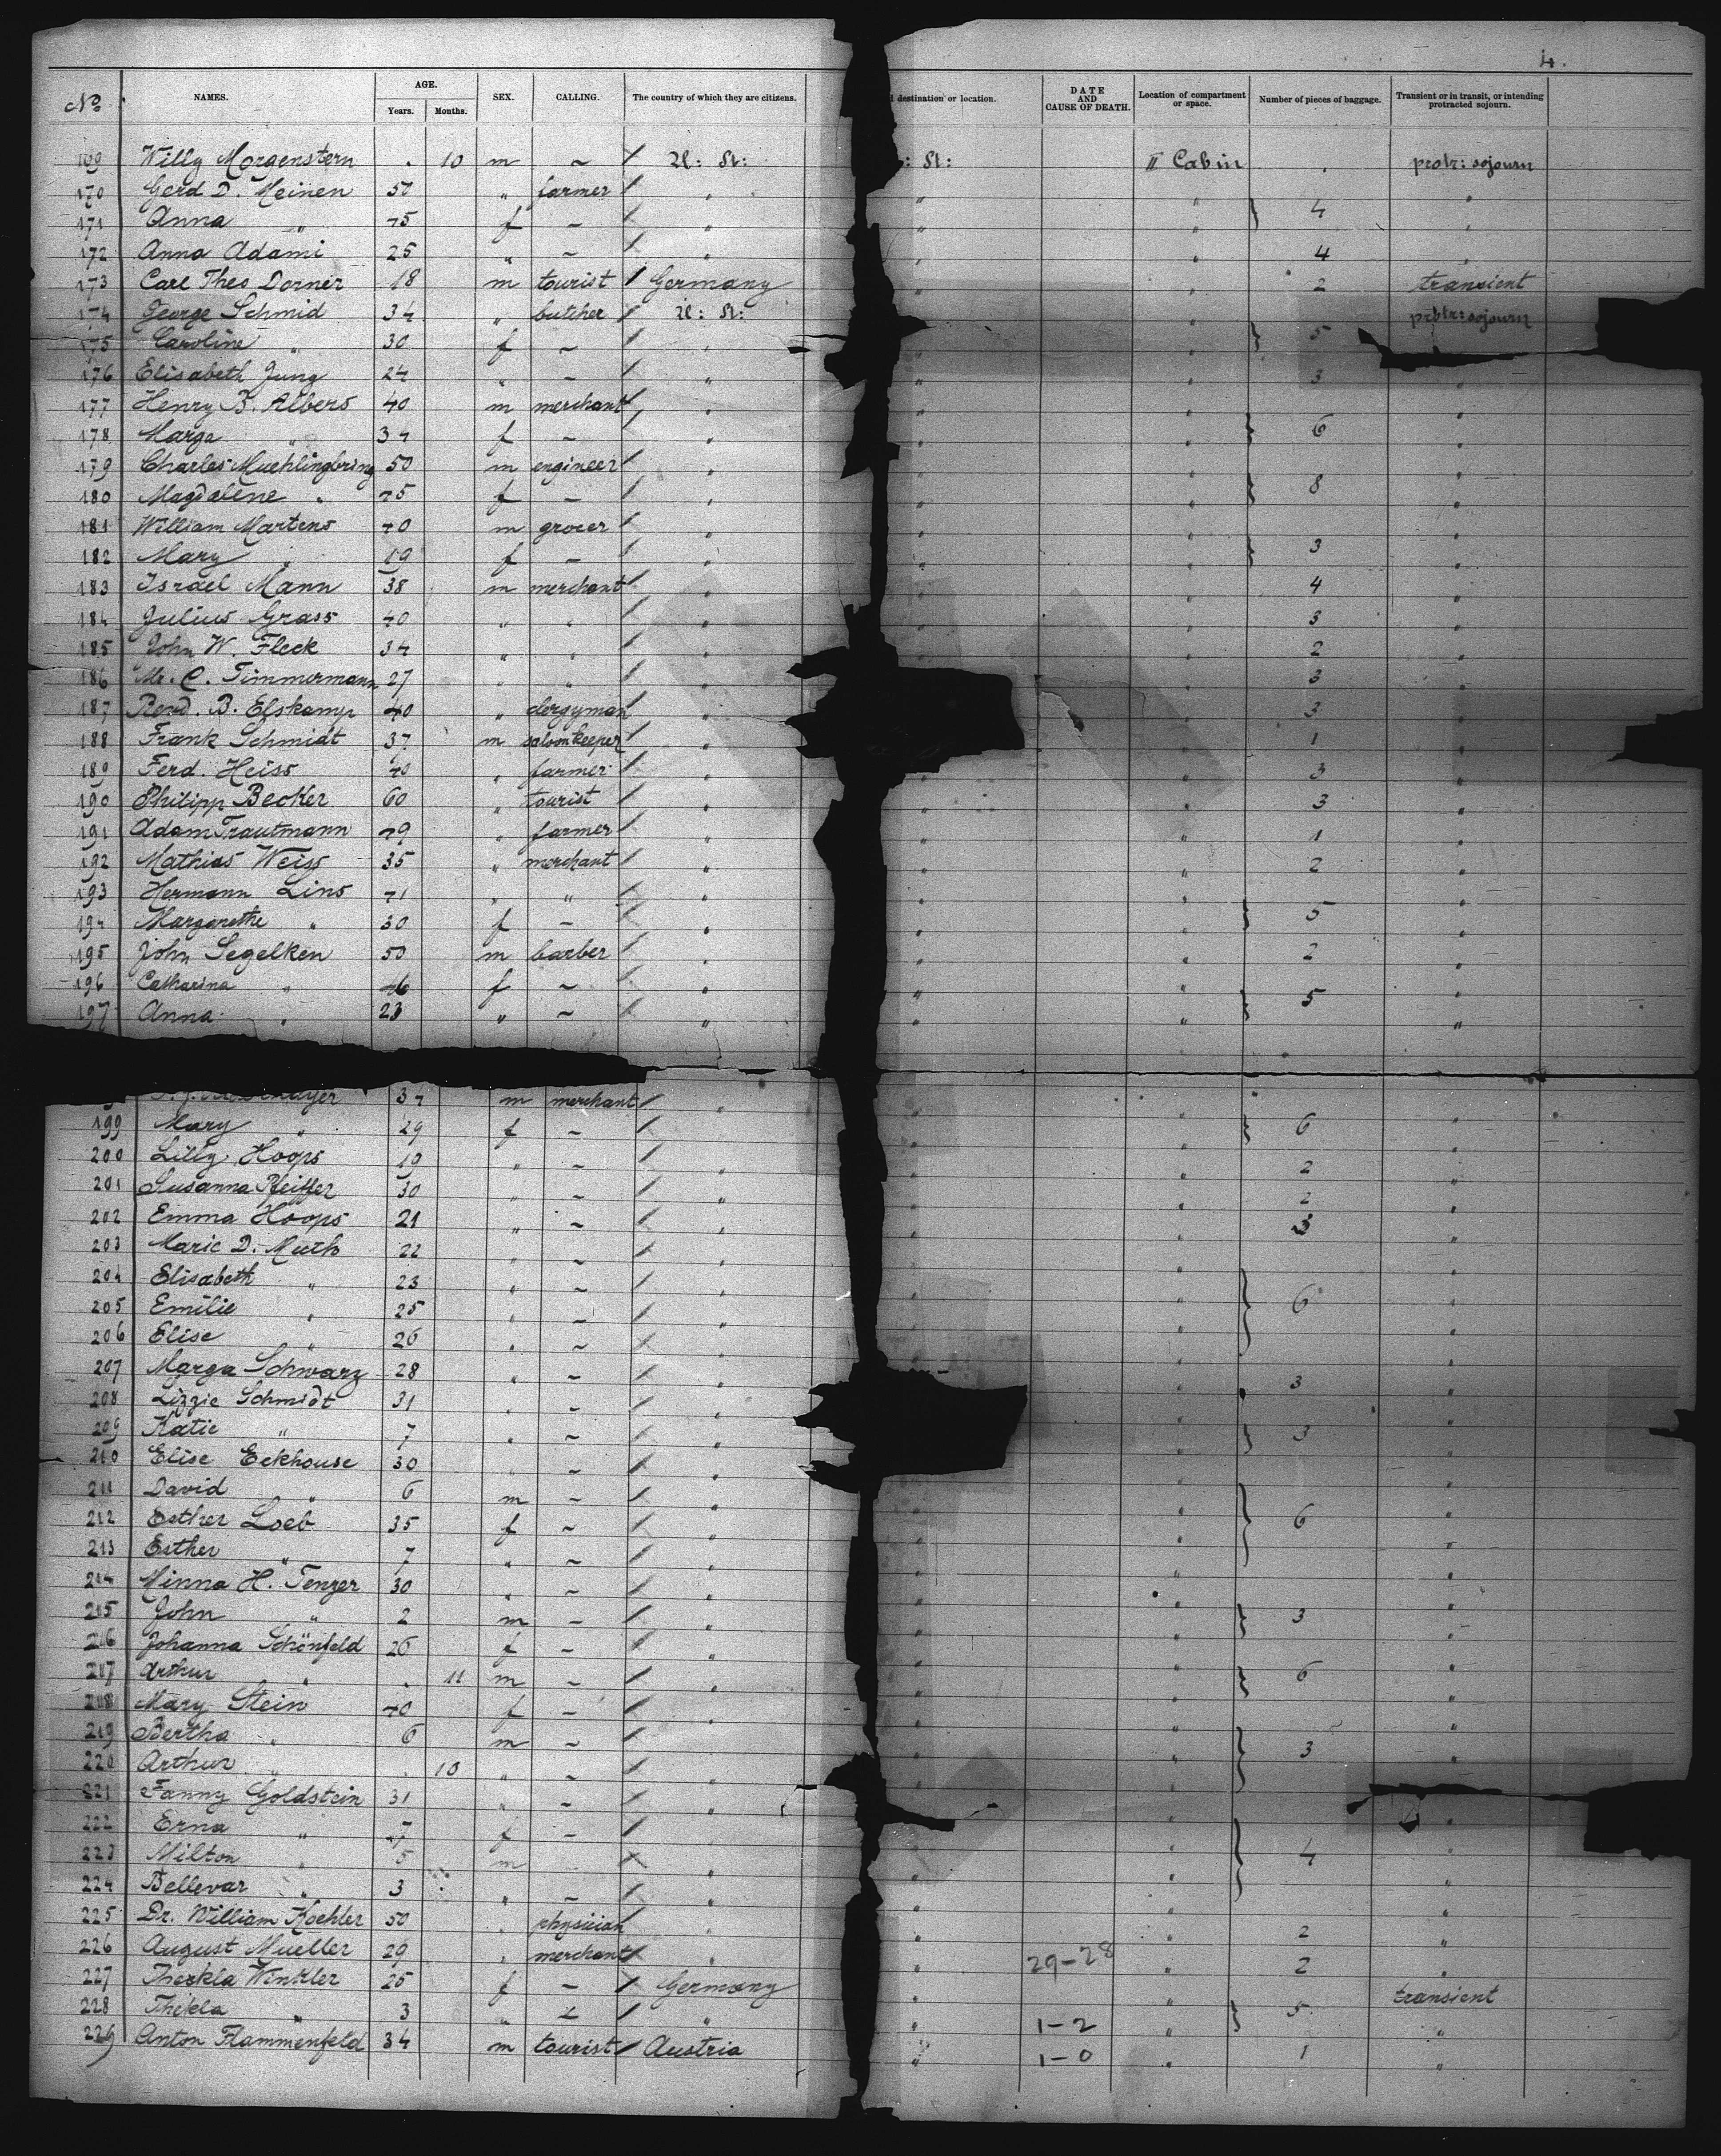 4.
No NAMES. AGE. Years. Months. SEX. CALLING. The country of which they are citizens. destination or location. DATE AND CAUSE OF DEATH. Location of compartment or space. Number of pieces of baggage. Transient or in transit, or intending protracted sojourn.
169 Willy Morgenstern . 10 m – / U: St: : St: II Cabin . protr: sojourn
170 Gerd D. Meinen 50 " farmer / " " " "
171 Anna " 45 f – / " " " } 4 "
172 Anna Adami 25 " – / " " " 4 "
173 Carl Theo Dorner 18 m tourist / Germany " " 2 transient
174 George Schmid 34 " butcher / U: St: " " protr: sojourn
175 Caroline " 30 f – / " " " } 5
176 Elisabeth Jung 24 " – / " " " 3 "
177 Henry B. Albers 40 m merchant / " " " "
178 Marga " 34 f – / " " " } 6 "
179 Charles Muehlingbring 50 m engineer / " " " "
180 Magdalene " 45 f – / " " " } 8 "
181 William Martens 40 m grocer / " " " "
182 Mary " 19 f – / " " " } 3 "
183 Israel Mann 38 m merchant / " " " 4 "
184 Julius Grass 40 " " / " " " 3 "
185 John W. Fleck 34 " " / " " " 2 "
186 Mr. C. Timmermann 27 " " / " " 3 "
187 Revd. B. Elskamp 40 " clergyman / " " 3 "
188 Frank Schmidt 37 m saloonkeeper / " " 1 "
189 Ferd. Heiss 40 " farmer / " " " 3 "
190 Philipp Becker 60 " tourist / " " " 3 "
191 Adam Trautmann 49 " farmer / " " " 1 "
192 Mathias Weiss 35 " merchant / " " " 2 "
193 Hermann Lins 41 " " / " " " "
194 Margarethe " 30 f – / " " " } 5 "
195 John Segelken 50 m barber / " " " 2 "
196 Catharina " 46 f – / " " " "
197 Anna " 23 " – " " " } 5 "
34 m merchant / " " "
199 Mary " 29 f – / " " } 6 "
200 Lilly Hoops 19 " – / " " 2 "
201 Susanna Pfeiffer 30 " – / " " 2 "
202 Emma Hoops 21 " – / " " 3 "
203 Marie D. Muth 22 " – / " " "
204 Elisabeth " 23 " – / " " "
205 Emilie " 25 " – / " " } 6 "
206 Elise " 26 " – / " " "
207 Marga Schwarz 28 " – / " " 3 "
208 Lizzie Schmidt 31 " – / " " "
209 Katie " 7 " – / " " } 3 "
210 Elise Eckhouse 30 " – / " " "
211 David " 6 m – / " " "
212 Esther Loeb 35 f – / " " } 6 "
213 Esther " 7 " – / " " "
214 Minna H. Tenzer 30 " – / " " "
215 John " 2 m – / " " } 3 "
216 Johanna Schönfeld 26 f – / " " "
217 Arthur " . 11 m – / " " } 6 "
218 Mary Stein 40 f – / " " "
219 Bertha " 6 m – / " " } 3 "
220 Arthur " . 10 " – / " " "
221 Fanny Goldstein 31 " – / " " "
222 Erna " 7 f – / " " "
223 Milton " 5 m / " " } 4 "
224 Bellevar " 3 " – / " " "
225 Dr. William Koehler 50 " physician " " " 2 "
226 August Mueller 29 " merchant / " " 29-28 " 2 "
227 Theskla Winkler 25 f – / Germany " " transient
228 Thekla " 3 " – / " " 1-2 " } 5 "
229 Anton Flammenfeld 34 m tourist / Austria " 1-0 " 1 "